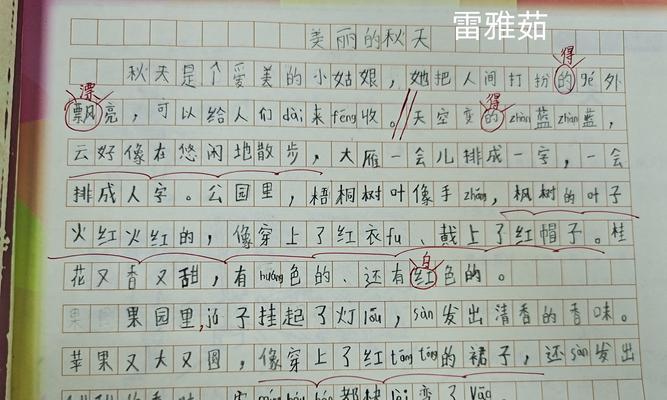 雷雅茹
美丽的秋天
得
秋天是个爱美的小姑娘，她把人间打扮的gé外
漂 得
飘亮，可以给人们dài来fēng收。天空变的zhàn蓝zhàn蓝，
云好像在悠闲地散步，大雁一会儿排成一字，一会
排成人字。公园里，梧桐树叶像手zhǎng，枫树的叶子
火红火红的，像穿上了红衣fu、戴上了红帽子。桂
白
花又香又甜，有huáng色的、还有红色的。
果园里，子挂起了灯lóu，sàn发出清香的香味。
苹果又大又圆，像穿上了红tōng tōng的裙子，还sàn发出